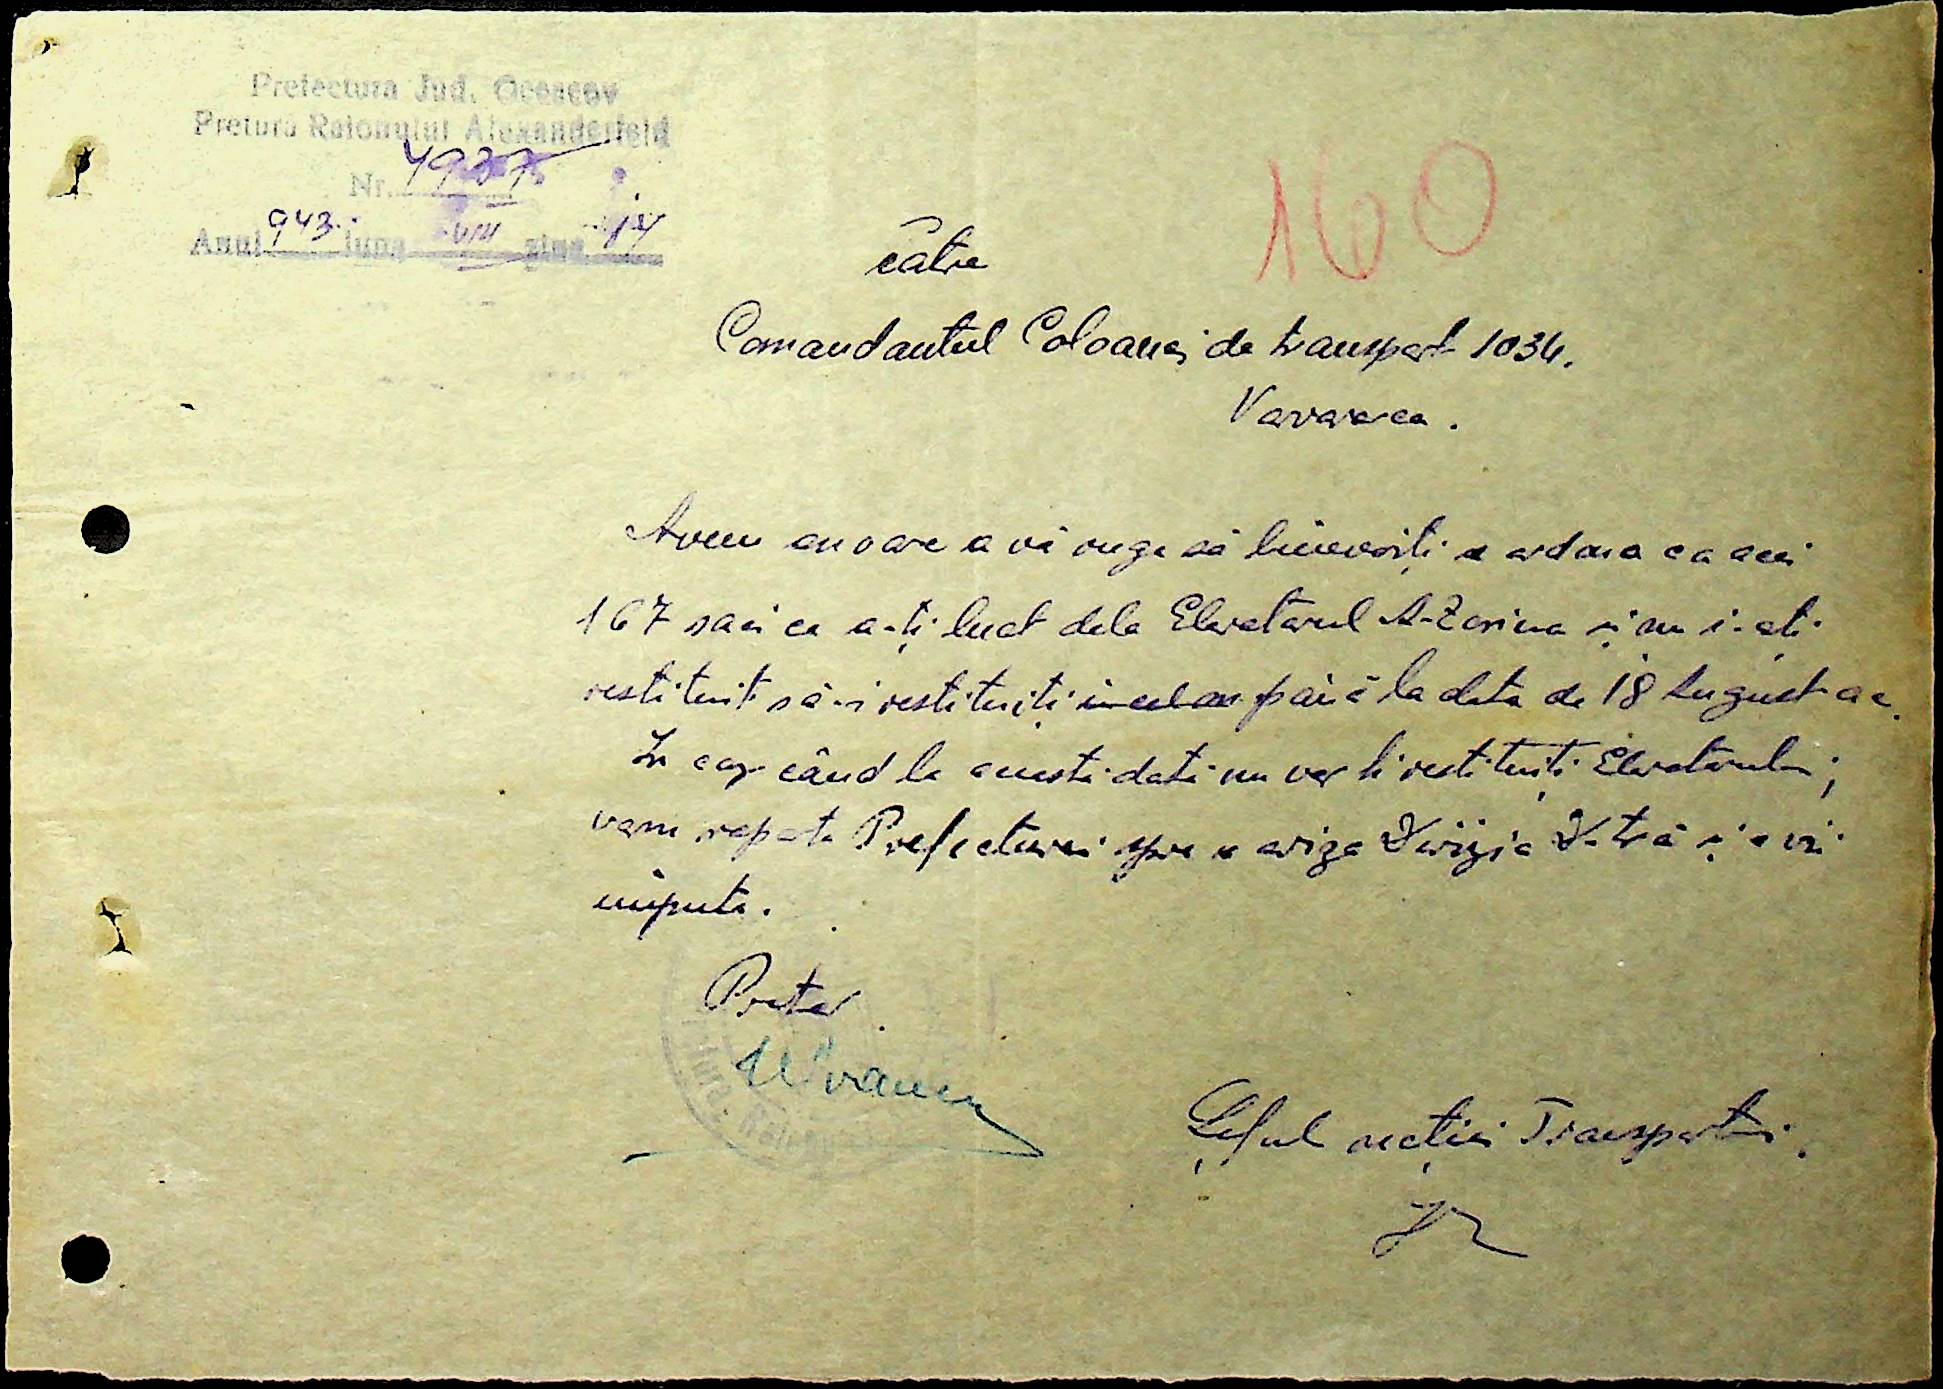 Prefectura Jud. Oceacov
Pretura Raionului Alexanderfeld
Nr. 4937
Anul 943 luna VIII ziua 14
160
către
Comandantul Coloanei de transport 1034.
Varvarovca.
Avem onoare a vă ruga să binevoiți a ordona ca acei
167 saci ce a-ți luat dela Elevatorul A-Zorina și nu i-ați
restituit să-i restituiți până la data de 18 August a.c.
In caz când la acestă dată nu vor fi restituiți Elevatorului,
vom raporta Prefecturei spre a aviza Divizia și a vi-i
imputa.
Pretor
Șeful secției Transporturi.